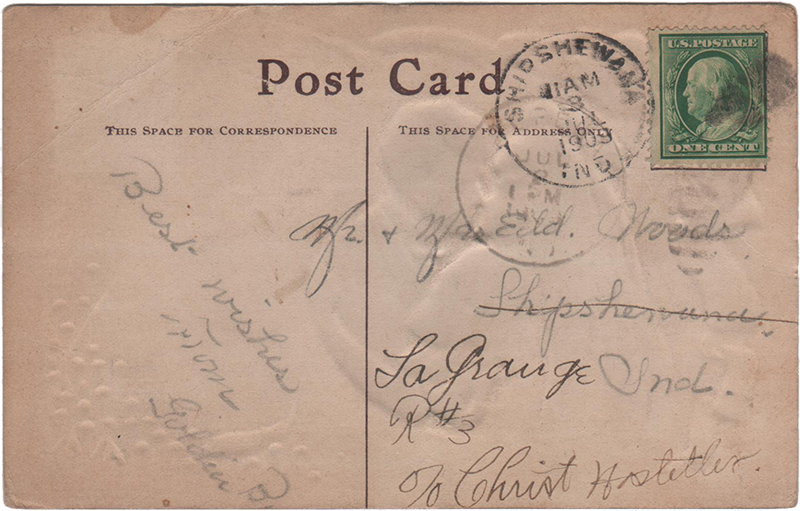 Post Card
THIS SPACE FOR CORRESPONDENCE
THIS SPACE FOR ADDRESS ONLY
SHIPSHEWANA
11AM
8
JUL
1909
IND
JUL
U.S. POSTAGE
ONE CENT
Best wishes
from
Golden
Mr. & Mrs. Edd. Woods
Shipshewana.
LaGrange Ind.
R#3
c/o Christ Hostetler.